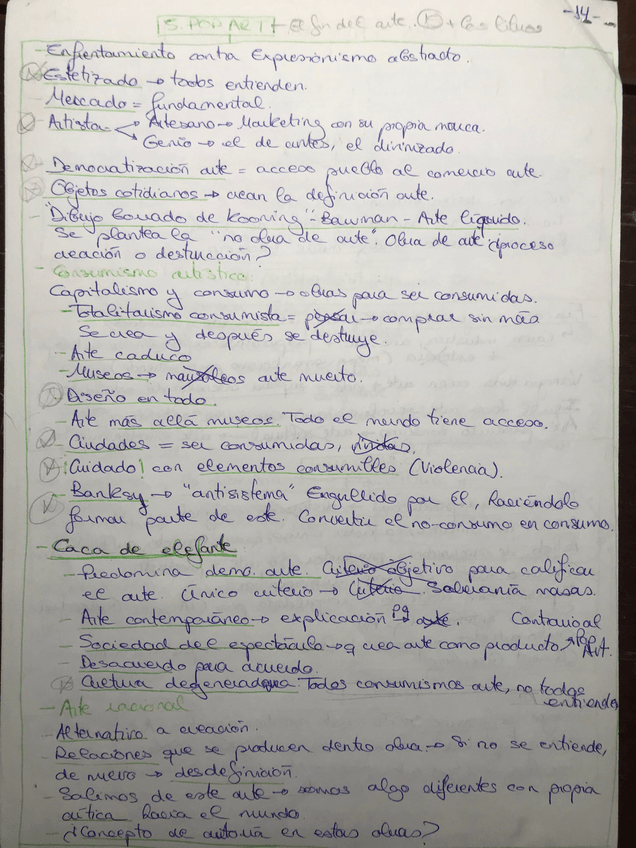 5. POP ART + El fin del arte. + Los libros
-14-
- Enfrentamiento contra Expresionismo abstracto.
Estetizado → todos entienden.
Mercado = fundamental.
Artista → Artesano → Marketing con su propia marca.
→ Genio → el de antes, el divinizado.
- Democratización arte = acceso pueblo al comercio arte.
- Objetos cotidianos → crean la definición arte.
- "Dibujo borrado de Kooning" - Bawman - Arte líquido.
Se plantea la "no obra de arte". Obra de arte ¿proceso
creación o destrucción?
- Consumismo artístico:
Capitalismo y consumo → obras para ser consumidas.
- Totalitarismo consumista = → comprar sin más
Se crea y después se destruye.
- Arte caduco
- Museos → mausoleos arte muerto.
- Diseño en todo.
- Arte más allá museos. Todo el mundo tiene acceso.
- Ciudades = ser consumidas, vividas.
- ¡Cuidado! con elementos consumilles (Violencia).
- Banksy → "antisistema" Engullido por Él, haciéndolo
formar parte de este. Convertir el no-consumo en consumo.
- Caca de elefante
- Predomina demo. arte. Criterio objetivo para calificar
el arte. Único criterio → Criterio Soberanía masas.
- Arte contemporáneo → explicación pq arte. Contrario al
Pop Art.
- Sociedad del espectáculo → q crea arte como producto
- Desacuerdo para acuerdo.
- Cultura degenerada Todos consumismos arte, no todos
entienden
- Arte racional
- Alternativo a creación.
- Relaciones que se producen dentro obra → Si no se entiende,
de nuevo → desdefinición.
- Salimos de este arte → somos algo diferentes con propia
crítica hacia el mundo.
- ¿Concepto de autoría en estas obras?